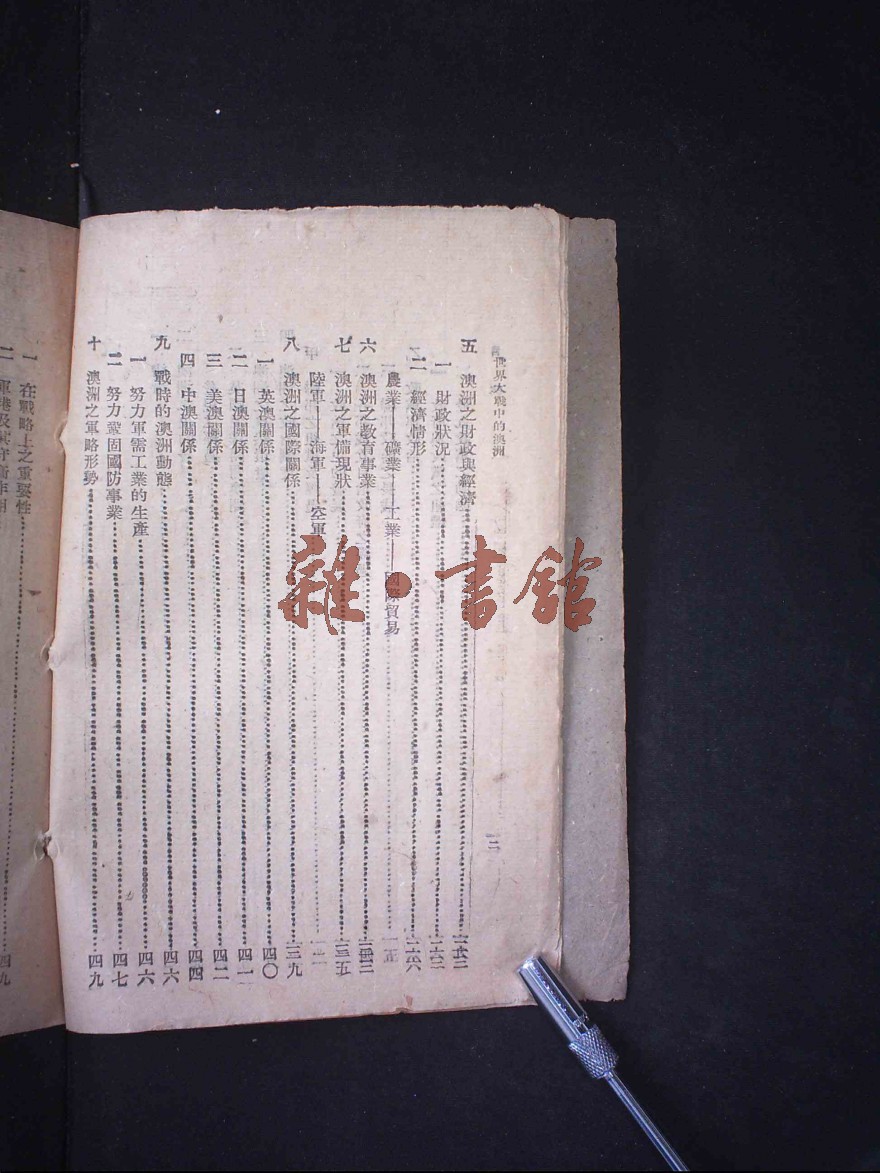 世界大戰中的澳洲
二
五 澳洲之財政與經濟
一 財政狀況
二 經濟情形
農業——礦業——工業——國際貿易
六 澳洲之教育事業
七 澳洲之軍備現狀
陸軍——海軍——空軍
八 澳洲之國際關係 三九
一 英澳關係 四〇
二 日澳關係 四一
三 美澳關係 四二
四 中澳關係 四四
九 戰時的澳洲動態 四六
一 努力軍需工業的生產 四六
二 努力鞏固國防事業 四七
十 澳洲之軍略形勢 四九
一 在戰略上之重要性
二 軍港及其守衛作用 四九
雜·書館